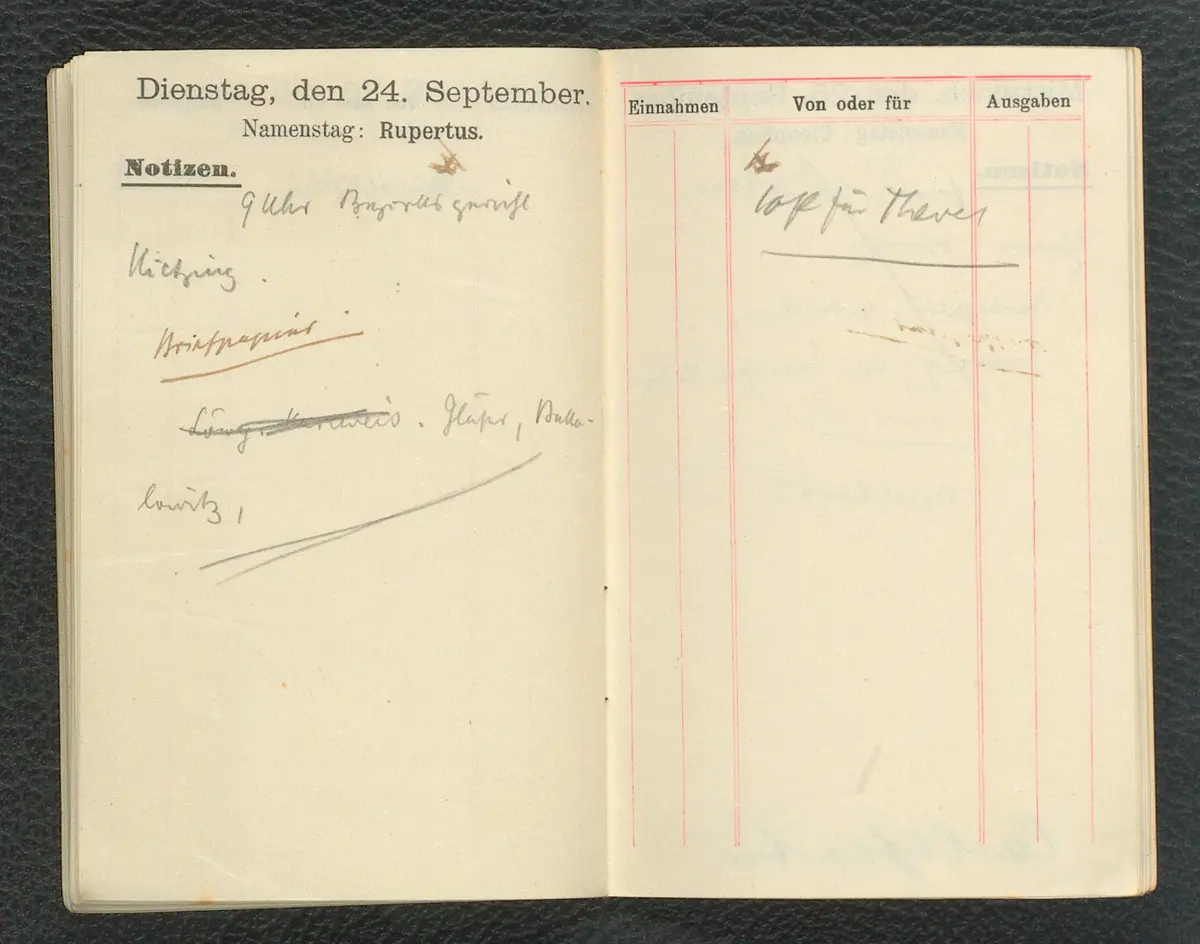 Dienstag, den 24. September.
Namenstag: Rupertus.
Notizen.
9 Uhr Bezirksgericht
Hietzing.
Briefpapier
Gläser, Balla-
lowitz,
Einnahmen Von oder für Ausgaben
für